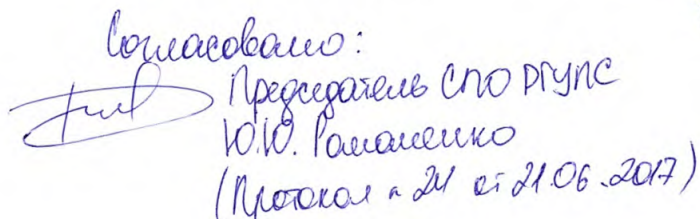 Согласовано:
Председатель СПО РГУПС
Ю.Ю. Романенко
(Протокол № 24 от 21.06.2017)